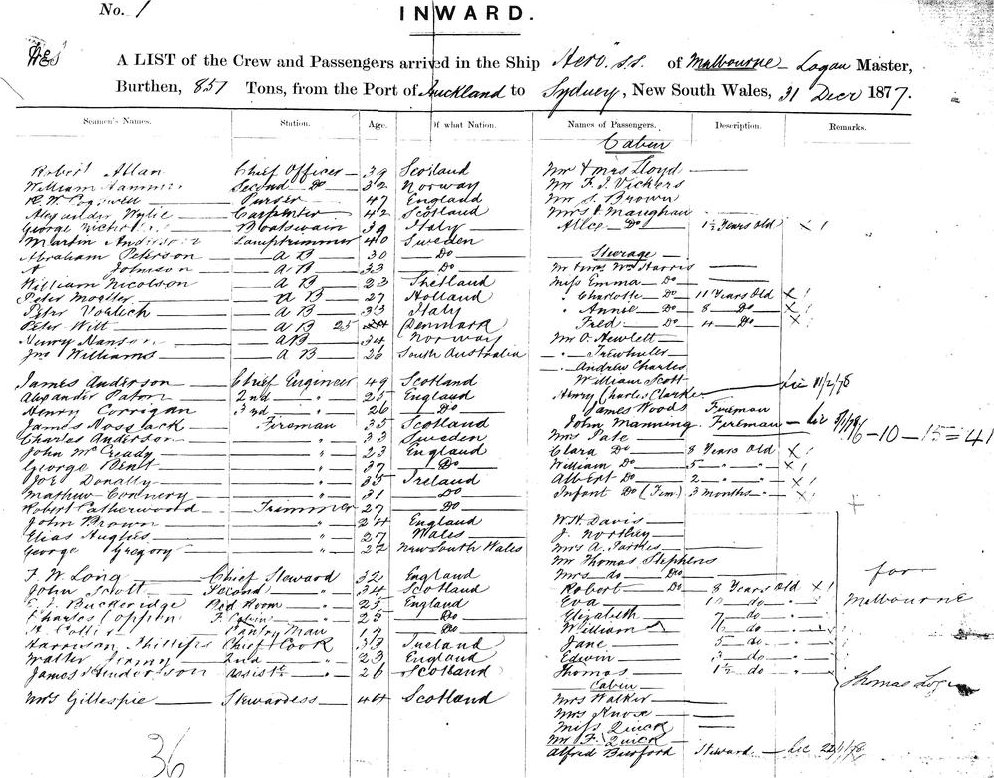 No. 1
INWARD.
A LIST of the Crew and Passengers arrived in the Ship "Hero" s.s. of Melbourne - Logan Master,
Burthen, 857 Tons, from the Port of Auckland to Sydney, New South Wales, 31 Decr 1877.
Seamen's Names. Station. Age. Of what Nation. Names of Passengers. Description. Remarks.
Cabin
Robert Allan Chief Officer 39 Scotland Mr & Mrs Lloyd
William Second Do 32 Norway Mr F. J. Vickers
R. W. Purser 47 England Mr S. Brown
Alexander Wylie Carpenter 42 Scotland Mrs Maughan
George Boatswain 39 Italy Allce Do 1½ Years old X 1
Martin Anderson Lamptrimmer 40 Sweden
Abraham Peterson A B 30 Do Steerage
Johnson A B 33 Do Mr & Mrs Wm Harris
William Nicolson A B 23 Shetland Miss Emma Do
Peter A B 27 Holland " Charlotte Do 11 Years Old X 1
Peter A B 33 Italy " Annie Do 8 Do X 1
Peter Witt A B 25 Denmark Fred Do 4 Do X 1
Henry Hanson A B 34 Norway Mr O. Hewlett
Jno Williams A B 26 South Australia
Andrew Charles
William Scott
James Anderson Chief Engineer 49 Scotland Henry Charles Clarke Lic 11/2/78
Alexander Paton 2nd " 25 England James Woods Fireman
Henry Corrigan 3rd " 26 Do John Manning Fireman Lic
James Fireman 35 Scotland Mrs Pale 6-10-15=41
Charles Anderson " 33 Sweden Clara Do 8 Years Old X 1
John McCready " 23 England William Do 5 " " X 1
George " 37 Do Albert Do 2 " " X 1
Joe Donally " 35 Ireland Infant Do (Fem) 3 months X 1
Mathew Connery " 31 Do
Robert Catherwood Trimmer 27 Do
John Brown " 24 England W. H. Davis
Elias Hughes " 27 Wales J. Northey
George Gregory " 22 New South Wales Mrs A. Parkes
Mr Thomas Stephens
F. W. Long Chief Steward 32 England Mrs do Do for
John Scott Second " 34 Scotland Robert Do 8 Years Old X 1 Melbourne
E. J. Buckeridge Bed Room 25 England Eva do
Charles Coppin F. Cabin 25 Do Elizabeth 7 do
Pantry Man 17 Do William do
Harrison Phillips Chief Cook 33 Ireland Jane 5 do
Walter 2nd " 23 England Edwin 3 do
James Anderson Assistt 26 Scotland Thomas 1½ do
Thomas Logan
Cabin
Mrs Gillespie Stewardess 44 Scotland Mrs Walker
Mrs Knose
Miss Quick
Mr F. Quick
Alfred Steward Lic
36